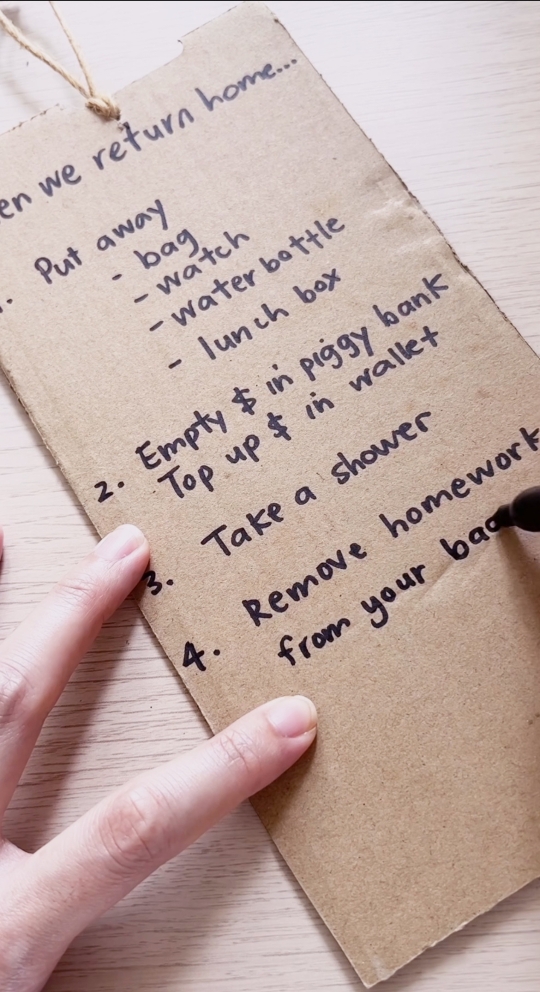 en we return home...
1. Put away
- bag
- watch
- water bottle
- lunch box
2. Empty $ in piggy bank
Top up $ in wallet
3. Take a shower
4. Remove homework
from your bac